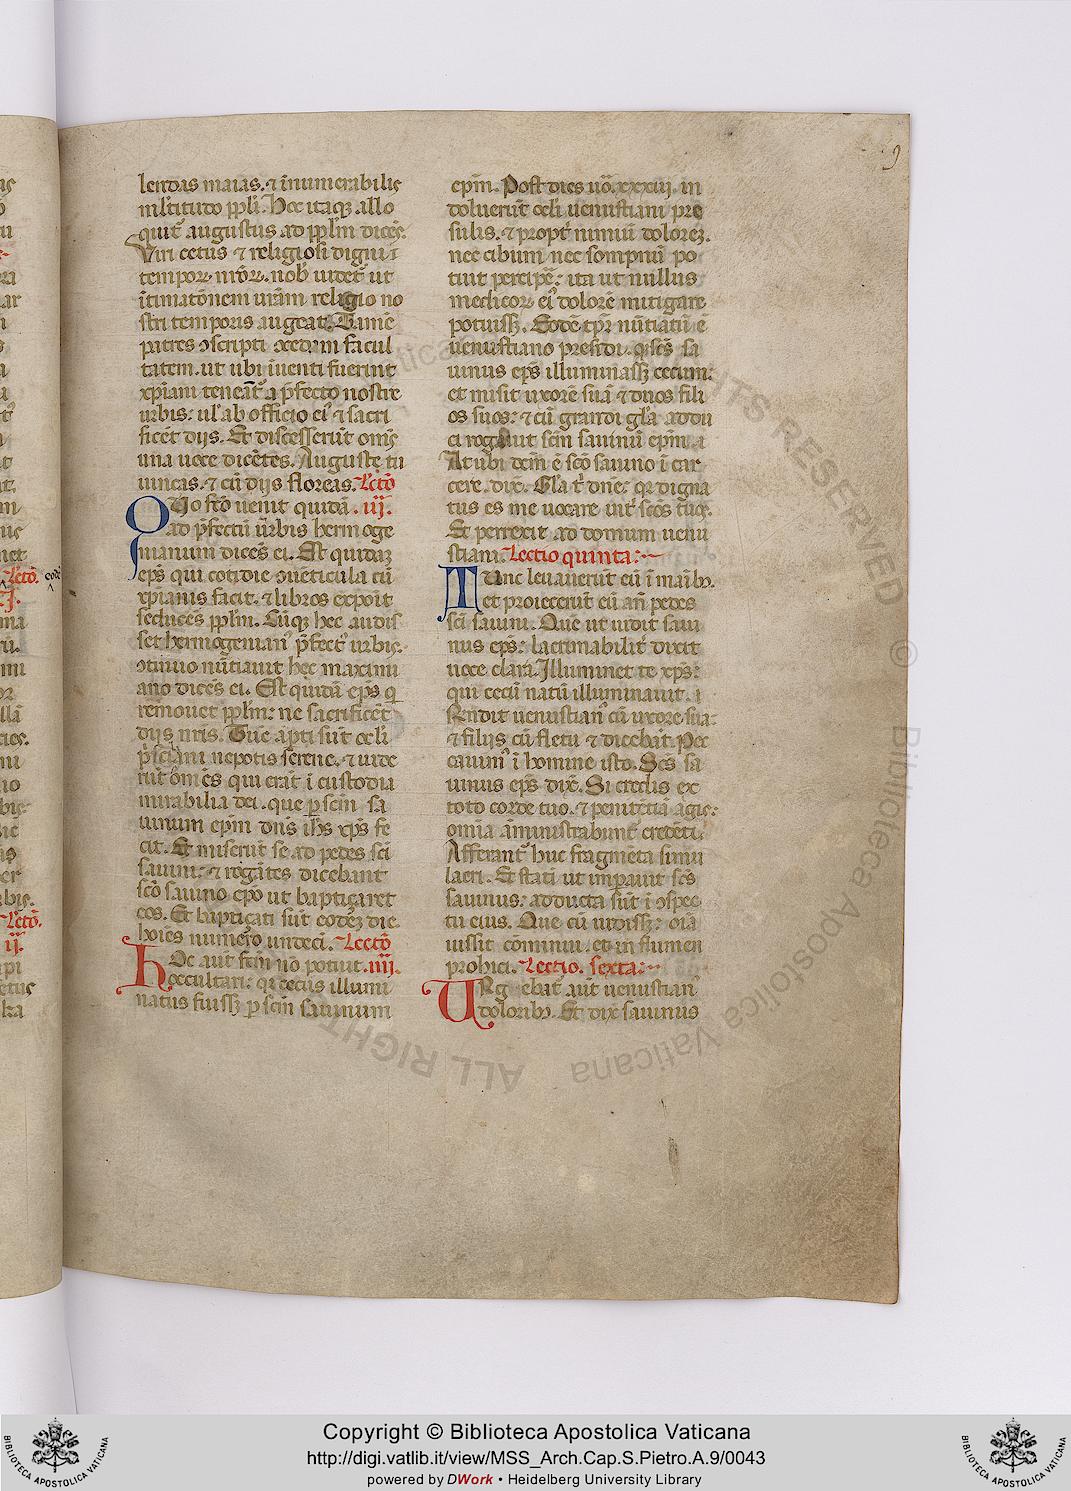 9
lendas maias. ⁊ īnumerabilis
ml̄titudo ppl̓i. Hoc itaqꝫ. allo
quit᷑ augustus. ad ppl̓m dicēs.
Viri cetus ⁊ religiosi digni ī
nob̓ uidet᷑ ut
religio no
stri temporis augeat᷑.
patres ↄscripti facul
tatem. ut ubi īuenti fuerint
xp̄iani teneāt᷑ a p̄fecto nostre
urbis: ul̓ ab officio ei᷒ ⁊ sacri
ficēt diis. Et discesserūt om̄s
una uoce dicētes. Auguste tu
uincas. ⁊ cū diis floreas. Lectō
Quo fc̄o uenit quidā .iii.
ad p̄fectū urbis hermoge
nianum dicēs ei. Est quidaꝫ
ep̄s qui cotidie ↄuēticula cū
xp̄ianis facit. ⁊ libros expoīt
seducēs ppl̓m. Cūqꝫ hec audis
set hermogenian᷒ p̄fect᷒ urbis.
ↄtinuo nūtiauit hec maximi
ano dicēs ei. Est quidā ep̄s q̄
remouet ppl̓m: ne sacrificēt
diis nr̄is. Tūc apti sūt ocl̓i
nepotis serene. ⁊ uide
rūt om̄es qui erāt ī custodia
mirabilia dei. que ꝑ scm̄ sa
uinum ep̄m dn̄s ih̄s xp̄s fe
cit. Et miserūt se ad pedes sc̄i
sauini: ⁊ rogātes dicebant
sc̄o sauino ep̄o ut baptiçaret
eos. Et baptiçati sūt eodēꝫ die
hoīes numero undeci. Lectō
Hoc aut̄ fcm̄ nō potuit .iiii.
occultari: qr̄ cecus illumi
natus fuissꝫ ꝑ scm̄ sauinum
ep̄m. Post dies uō. xxxiii. in
doluerūt ocl̓i uenustiani pre
sulis. ⁊ propt᷑ nimiū dolorēꝫ.
nec cibum nec sompnū po
tuit percipē: ita ut nullus
medicoꝝ ei᷒ dolorē mitigare
potuissꝫ. Eodē tp̄r nūtiatū ē
uenustiano presidi. qr̄ sc̄s sa
uinus ep̄s illuminassꝫ cecum:
et misit uxorē suā ⁊ duos fili
os suos: ⁊ cū grandi gl̓a addu
ci rogauit scm̄ sauinū ep̄m.
At ubi dc̄m ē sc̄o sauino ī car
cere. dix̄. Gl̓a t᷑ dn̄e: qr̄ digna
tus es me uocare int᷑ sc̄os tuos.
Et perrexit ad domum uenu
stiani. Lectio quinta:
Tunc leuauerūt eū ī maībꝫ.
et proiecerūt eū an̄ pedes
sc̄i sauini. Quē ut uidit saui
nus ep̄s: lacrimabilit᷑ dixit
uoce clara. Illuminet te xp̄s:
qui cecū natū illuminauit. ī
gr̄ndit uenustian᷒ cū uxore sua:
⁊ filiis cū fletu ⁊ dicebāt. Pec
cauim᷒ ī homine isto. Sc̄s sa
uinus ep̄s dix̄. Si credis ex
toto corde tuo. ⁊ penitētiā agis:
omīa āministrabunt᷑ credēti.
Afferant᷑ huc fragmēta simu
lacri. Et stati ut imperauit sc̄s
sauinus: adducta sūt ī ↄspec
tu eius. Que cū uidissꝫ: oīa
iussit cōminui. et in flumen
prohici. Lectio. sexta:
Urgebat᷑ aūt uenustian᷒
doloribꝫ. Et dix̄ sauinus
Copyright © Biblioteca Apostolica Vaticana
http://digi.vatlib.it/view/MSS_Arch.Cap.S.Pietro.A.9/0043
powered by DWork • Heidelberg University Library